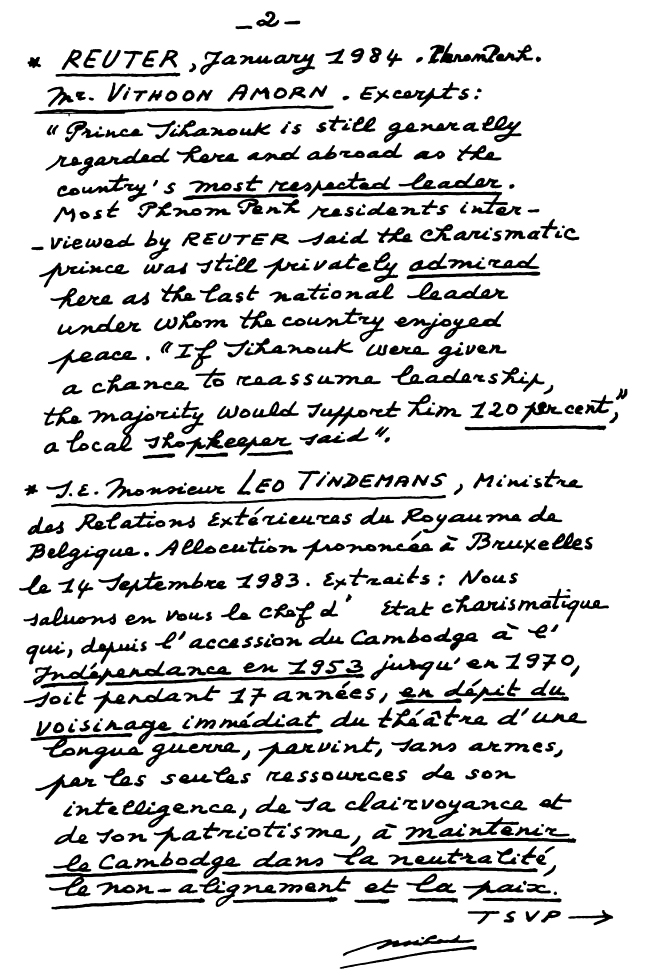 - 2 -
* REUTER, January 1984. PhnomPenh.
Mr. VITHOON AMORN. Excerpts:
"Prince Sihanouk is still generally
regarded here and abroad as the
country's most respected leader.
Most Phnom Penh residents inter-
-viewed by REUTER said the charismatic
prince was still privately admired
here as the last national leader
under whom the country enjoyed
peace. "If Sihanouk were given
a chance to reassume leadership,
the majority would support him 120 per cent,"
a local shopkeeper said".
* S.E. Monsieur LEO TINDEMANS, Ministre
des Relations Extérieures du Royaume de
Belgique. Allocution prononcée à Bruxelles
le 14 Septembre 1983. Extraits: Nous
saluons en vous le chef d' Etat charismatique
qui, depuis l'accession du Cambodge à l'
Indépendance en 1953 jusqu'en 1970,
soit pendant 17 années, en dépit du
voisinage immédiat du théâtre d'une
longue guerre, parvint, sans armes,
par les seules ressources de son
intelligence, de sa clairvoyance et
de son patriotisme, à maintenir
le Cambodge dans la neutralité,
le non-alignement et la paix.
TSVP →